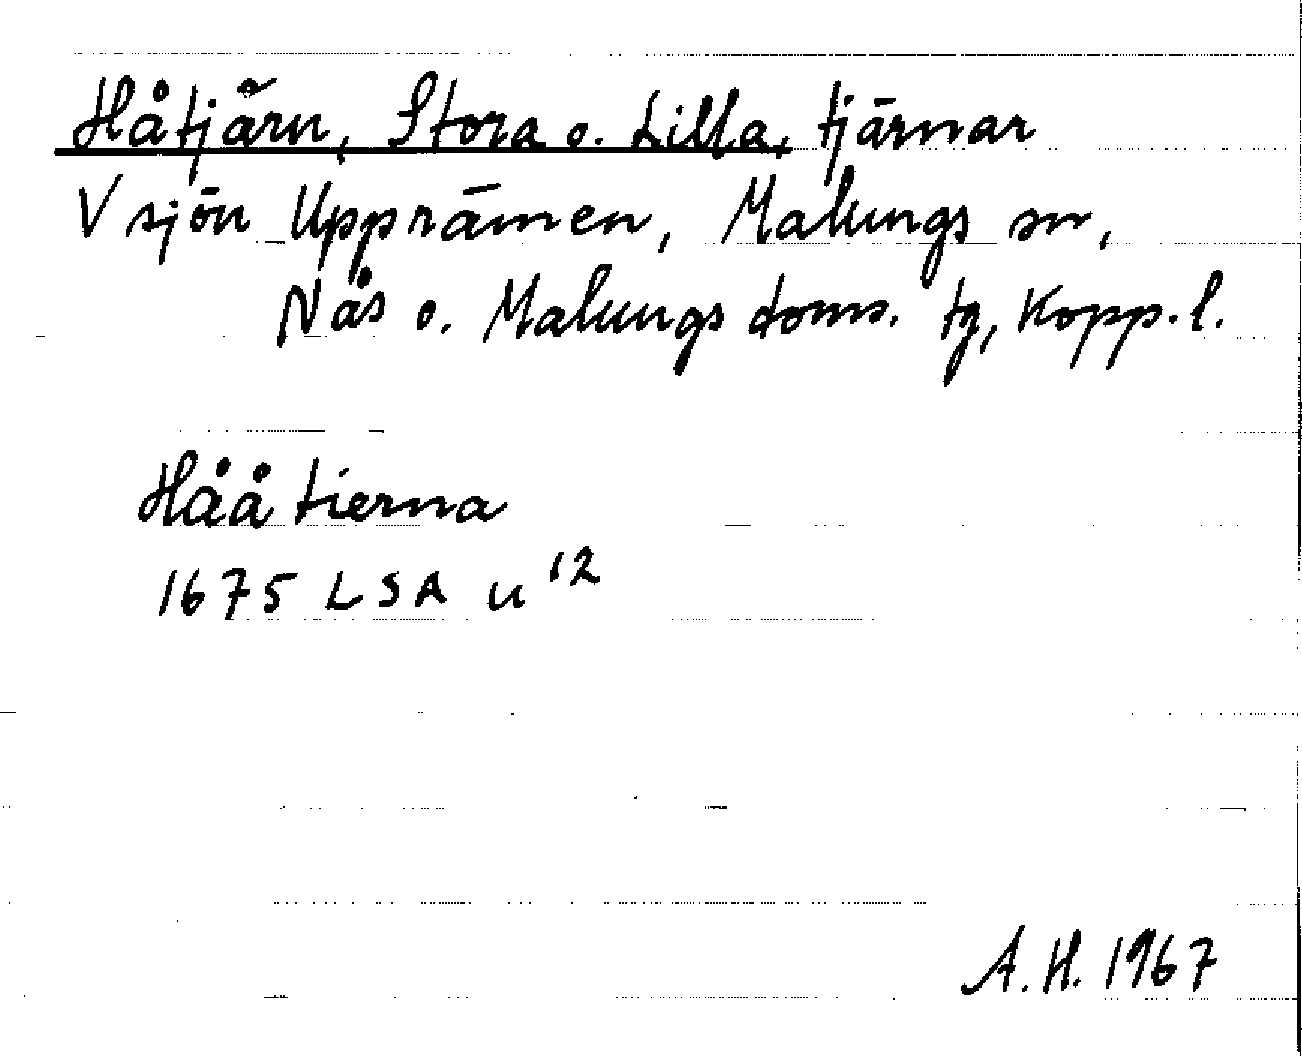 Håtjärn, Stora o. Lilla, tjärnar
V sjön Upprämen, Malungs sn,
Nås o. Malungs doms. tg, Kopp. l.
Håå tierna
1675 LSA u 12
A. H. 1967